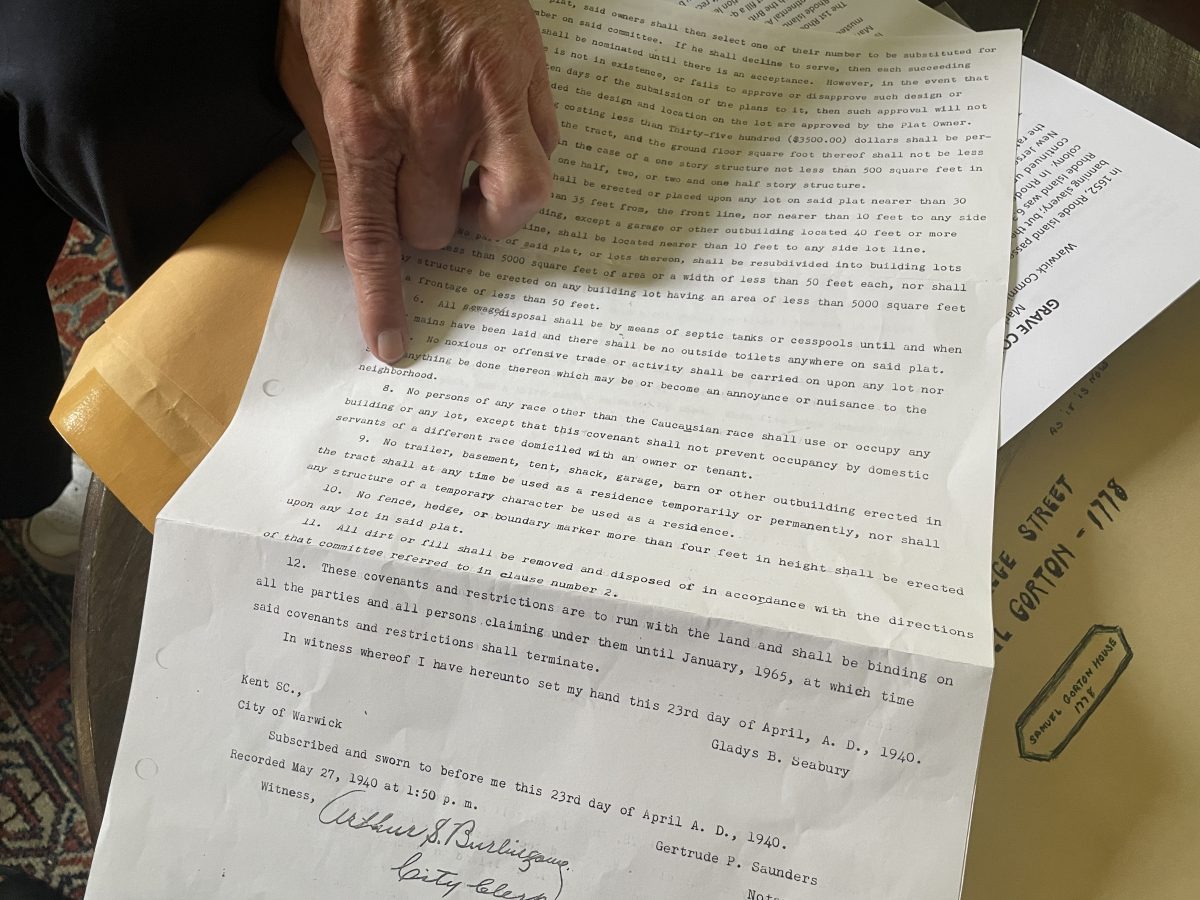 plat, said owners shall then select one of their number to be substituted for
mber on said committee. If he shall decline to serve, then each succeeding
shall be nominated until there is an acceptance. However, in the event that
e is not in existence, or fails to approve or disapprove such design or
ten days of the submission of the plans to it, then such approval will not
ded the design and location on the lot are approved by the Plat Owner.
g costing less than Thirty-five hundred ($3500.00) dollars shall be per-
the tract, and the ground floor square foot thereof shall not be less
in the case of a one story structure not less than 500 square feet in
one half, two, or two and one half story structure.
hall be erected or placed upon any lot on said plat nearer than 30
an 35 feet from, the front line, nor nearer than 10 feet to any side
ding, except a garage or other outbuilding located 40 feet or more
line, shall be located nearer than 10 feet to any side lot line.
No part of said plat, or lots thereon, shall be resubdivided into building lots
less than 5000 square feet of area or a width of less than 50 feet each, nor shall
y structure be erected on any building lot having an area of less than 5000 square feet
a frontage of less than 50 feet.
6. All sewage disposal shall be by means of septic tanks or cesspools until and when
mains have been laid and there shall be no outside toilets anywhere on said plat.
. No noxious or offensive trade or activity shall be carried on upon any lot nor
anything be done thereon which may be or become an annoyance or nuisance to the
neighborhood.
8. No persons of any race other than the Caucausian race shall use or occupy any
building or any lot, except that this covenant shall not prevent occupancy by domestic
servants of a different race domiciled with an owner or tenant.
9. No trailer, basement, tent, shack, garage, barn or other outbuilding erected in
the tract shall at any time be used as a residence temporarily or permanently, nor shall
any structure of a temporary character be used as a residence.
10. No fence, hedge, or boundary marker more than four feet in height shall be erected
upon any lot in said plat.
11. All dirt or fill shall be removed and disposed of in accordance with the directions
of that committee referred to in clause number 2.
12. These covenants and restrictions are to run with the land and shall be binding on
all the parties and all persons claiming under them until January, 1965, at which time
said covenants and restrictions shall terminate.
In witness whereof I have hereunto set my hand this 23rd day of April, A. D., 1940.
Gladys B. Seabury
Kent SC.,
City of Warwick
Subscribed and sworn to before me this 23rd day of April A. D., 1940.
Gertrude P. Saunders
Recorded May 27, 1940 at 1:50 p. m.
Witness,
Arthur S. Burlingame
City Clerk
In 1652, Rhode Island passe
banning slavery; but the
colony. In Rhod
Rhode Island was 6
continued u
New Jers
the ra
Warwick Commi
GRAVE CO
AS IT IS NOW
EGE STREET
L GORTON - 1778
SAMUEL GORTON HOUSE
1778